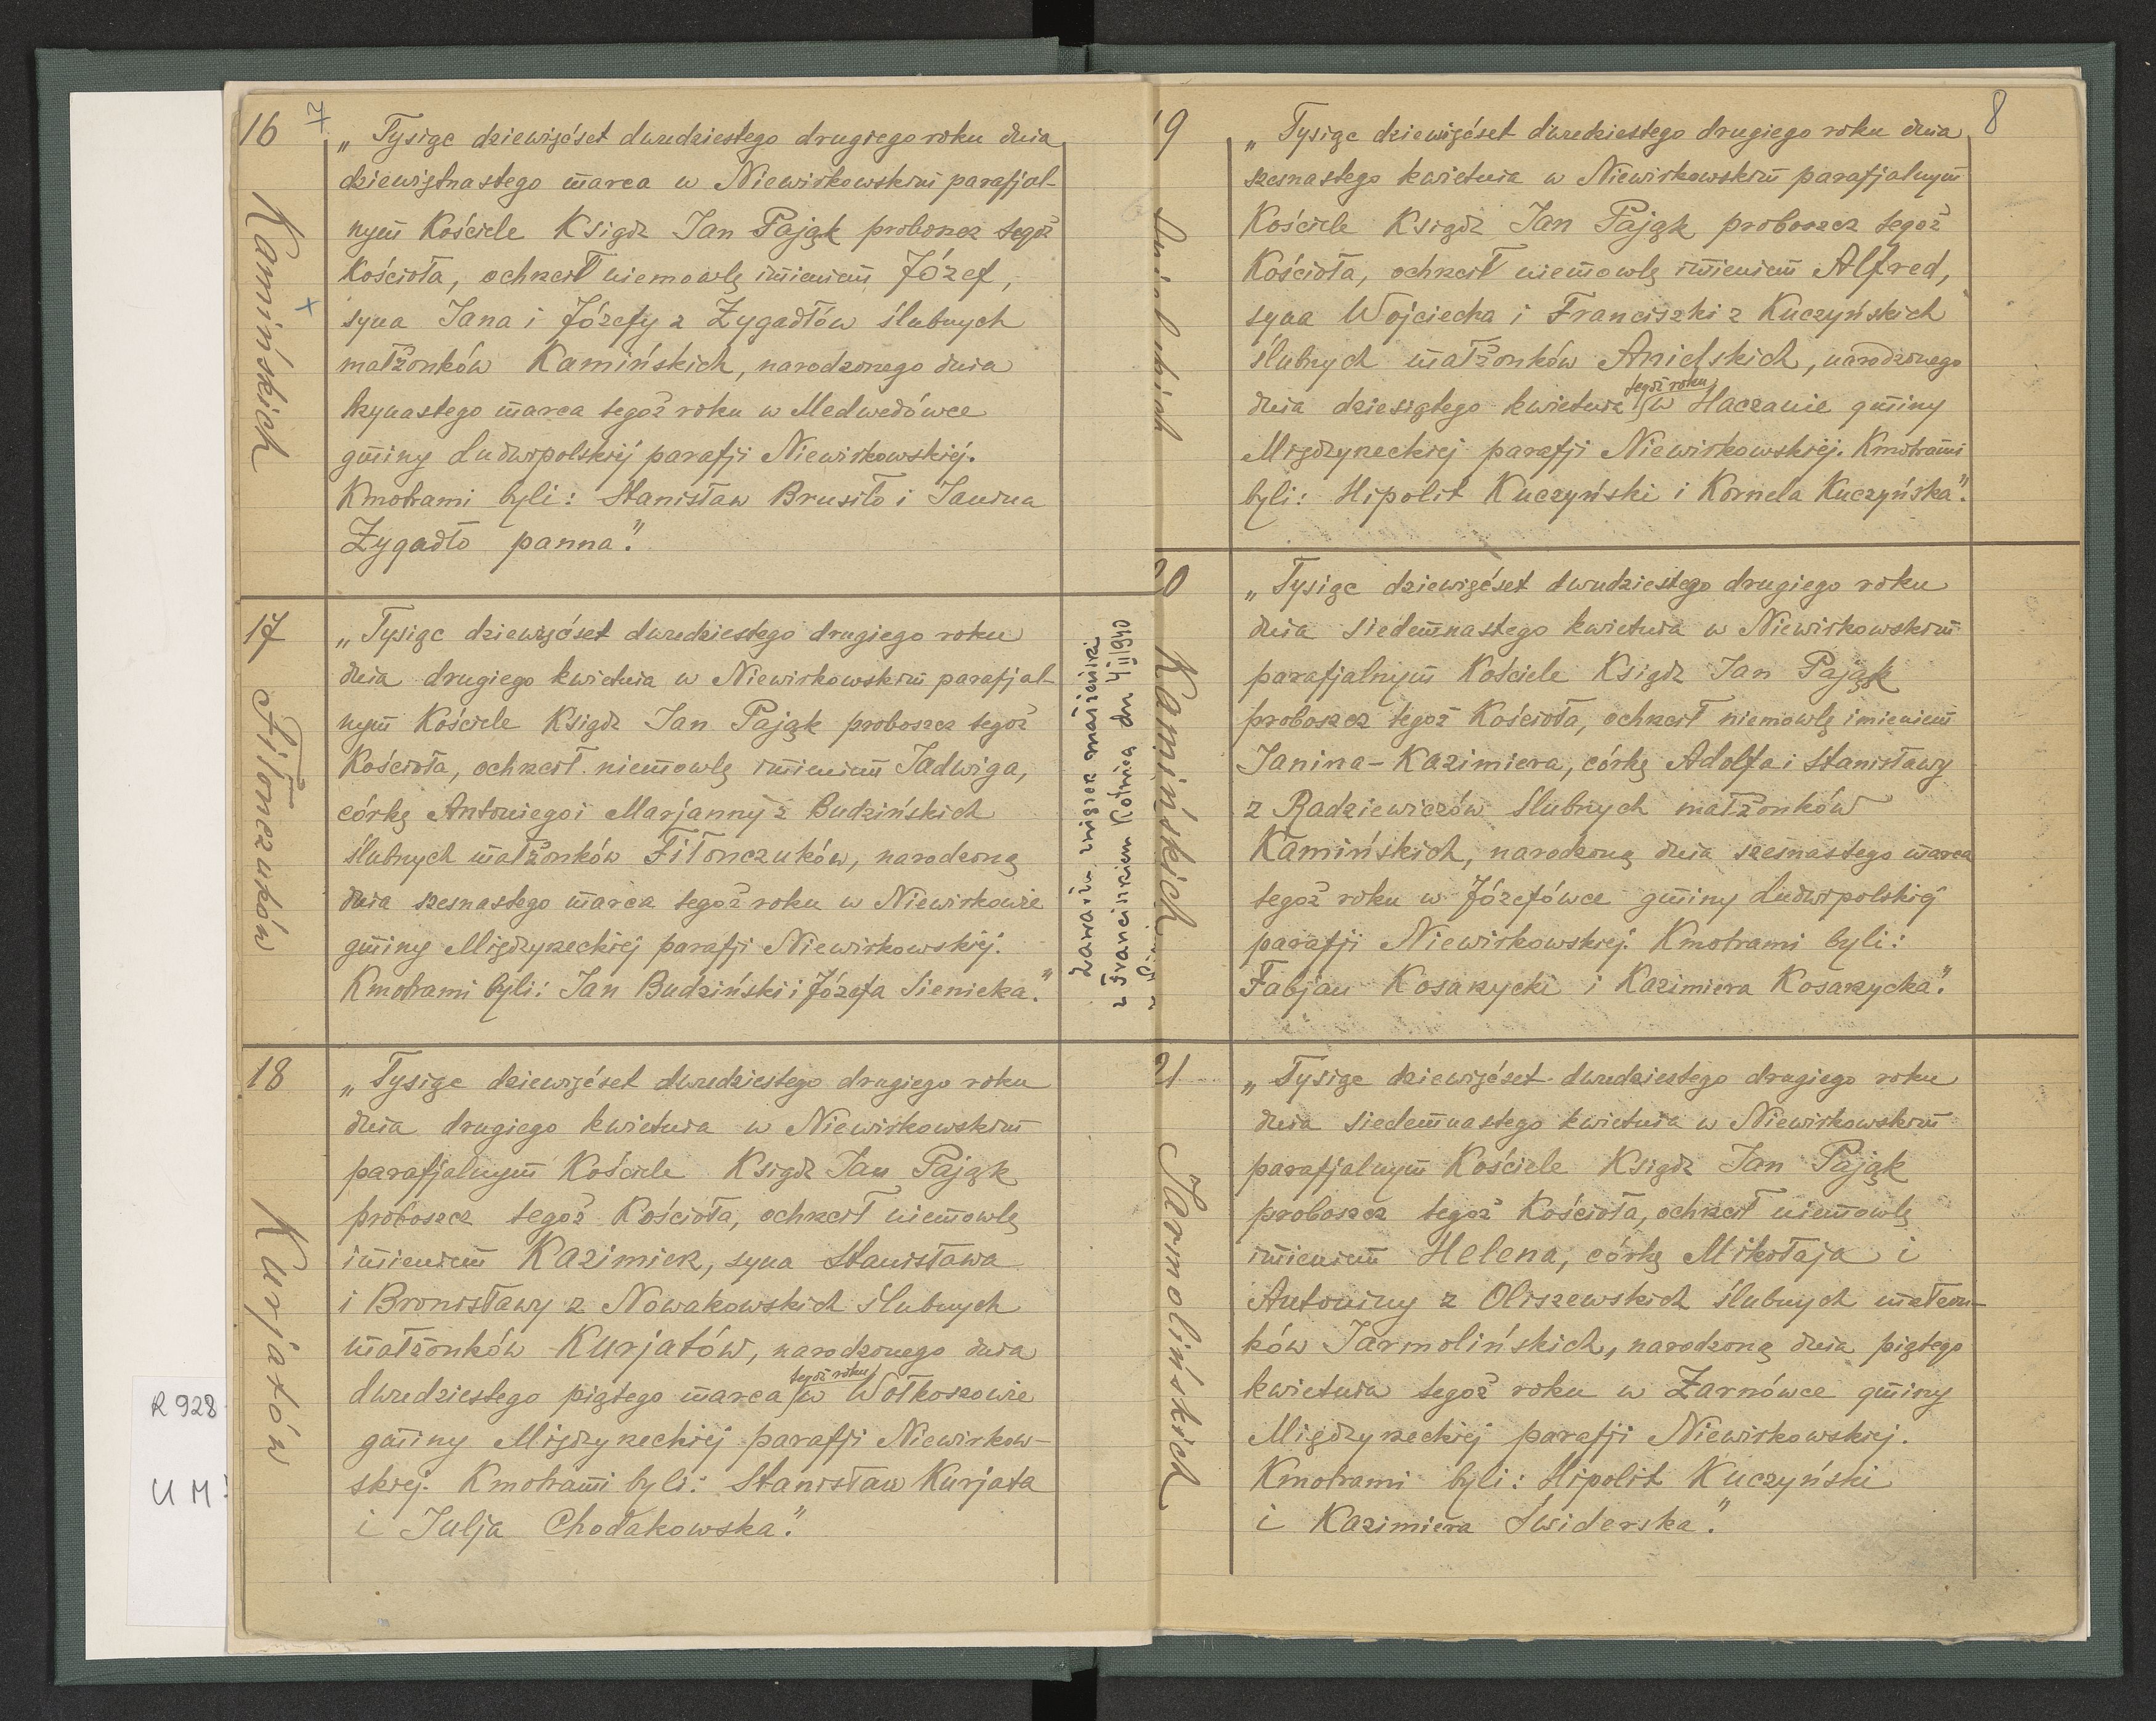 7
16
Kamińskich
„Tysiąc dziewięćset dwudziestego drugiego roku dnia
dziewiętnastego marca w Niewirkowskim parafjal-
nym Kościele Ksiądz Jan Pająk proboszcz tegoż
Kościoła, ochrzcił niemowlę imieniem Józef,
syna Jana i Józefy z Zygadłów ślubnych
małżonków Kamińskich, narodzonego dnia
trzynastego marca tegoż roku w Medwedówce
gminy Ludwipolskiéj parafji Niewirkowskiéj.
Kmotrami byli: Stanisław Brusiło i Janina
Zygadło panna."
17
Fiłonczuków
„Tysiąc dziewięćset dwudziestego drugiego roku
dnia drugiego kwietnia w Niewirkowskim parafjal-
nym Kościele Ksiądz Jan Pająk proboszcz tegoż
Kościoła, ochrzcił niemowlę imieniem Jadwiga,
córkę Antoniego i Marjanny z Budzińskich
ślubnych małżonków Fiłonczuków, narodzoną
dnia szesnastego marca tegoż roku w Niewirkowie
gminy Międzyrzeckiéj parafji Niewirkowskiéj.
Kmotrami byli: Jan Budziński i Józefa Sienicka."
zawarła związek małżeński
z Franciszkiem Kotwicą dn 4 II 1940
18
Kurjatów
„Tysiąc dziewięćset dwudziestego drugiego roku
dnia drugiego kwietnia w Niewirkowskim
parafjalnym Kościele Ksiądz Jan Pająk
proboszcz tegoż Kościoła, ochrzcił niemowlę
imieniem Kazimierz, syna Stanisława
i Bronisławy z Nowakowskich ślubnych
małżonków Kurjatów, narodzonego dnia
tegoż roku
dwudziestego piątego marca w Wołkoszowie
gminy Międzyrzeckiéj parafji Niewirkow-
skiej. Kmotrami byli: Stanisław Kurjata
i Julja Chodakowska."
R 928
U M
8
19
Anielskich
„Tysiąc dziewięćset dwudziestego drugiego roku dnia
szesnastego kwietnia w Niewirkowskim parafjalnym
Kościele Ksiądz Jan Pająk proboszcz tegoż
Kościoła, ochrzcił niemowlę imieniem Alfred,
syna Wojciecha i Franciszki z Kuczyńskich
ślubnych małżonków Anielskich, narodzonego
tegoż roku
dnia dziesiątego kwietnia w Haczanie gminy
Międzyrzeckiej parafji Niewirkowskiéj. Kmotrami
byli: Hipolit Kuczyński i Kornela Kuczyńska."
20
Kamińskich
„Tysiąc dziewięćset dwudziestego drugiego roku
dnia siedemnastego kwietnia w Niewirkowskim
parafjalnym Kościele Ksiądz Jan Pająk
proboszcz tegoż Kościoła, ochrzcił niemowlę imieniem
Janina-Kazimiera, córkę Adolfa i Stanisławy
z Radziewiczów ślubnych małżonków
Kamińskich, narodzoną dnia szesnastego marca
tegoż roku w Józefówce gminy Ludwipolskiéj
parafji Niewirkowskiej. Kmotrami byli:
Fabjan Kosarzycki i Kazimiera Kosarzycka."
21
Jarmolińskich
„Tysiąc dziewięćset dwudziestego drugiego roku
dnia siedemnastego kwietnia w Niewirkowskim
parafjalnym Kościele Ksiądz Jan Pająk
proboszcz tegoż Kościoła, ochrzcił niemowlę
imieniem Helena, córkę Mikołaja i
Antoniny z Oliszewskich ślubnych małżon-
ków Jarmolińskich, narodzoną dnia piątego
kwietnia tegoż roku w Żarnówce gminy
Międzyrzeckiéj parafji Niewirkowskiej.
Kmotrami byli: Hipolit Kuczyński
i Kazimiera Świderska."